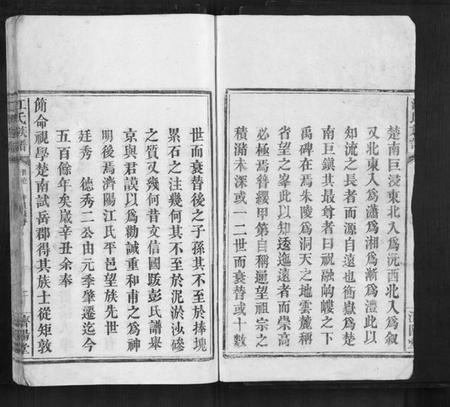 楚南巨浸東北人為沅西北人為叙
又北東人為瀟為湘為漸為澧此以
知流之長者而源自遠也衡嶽為楚
南巨鎮其最尊者曰祝融岣嶁之下
禹碑在焉朱陵為洞天之地雲麓稱
省望之峯此以知逶迤遠者而崇高
必極焉昔綏甲第自稱遞望祖宗之
積潴未深或一二世而衰替或十數
世而衰替後之子孫其不至於捧塊
累石之注幾何其不至於泥淤沙磣
之質又幾何昔文信國䟦彭氏譜舉
京與君謨以為勸誡重和甫之為神
明後焉濟陽江氏平邑望族先世
廷秀 德秀二公由元季肇遷迄今
五百餘年矣嵗辛丑余奉
簡命視學楚南試岳郡得其族士從矩敦
江氏族譜
濟陽堂